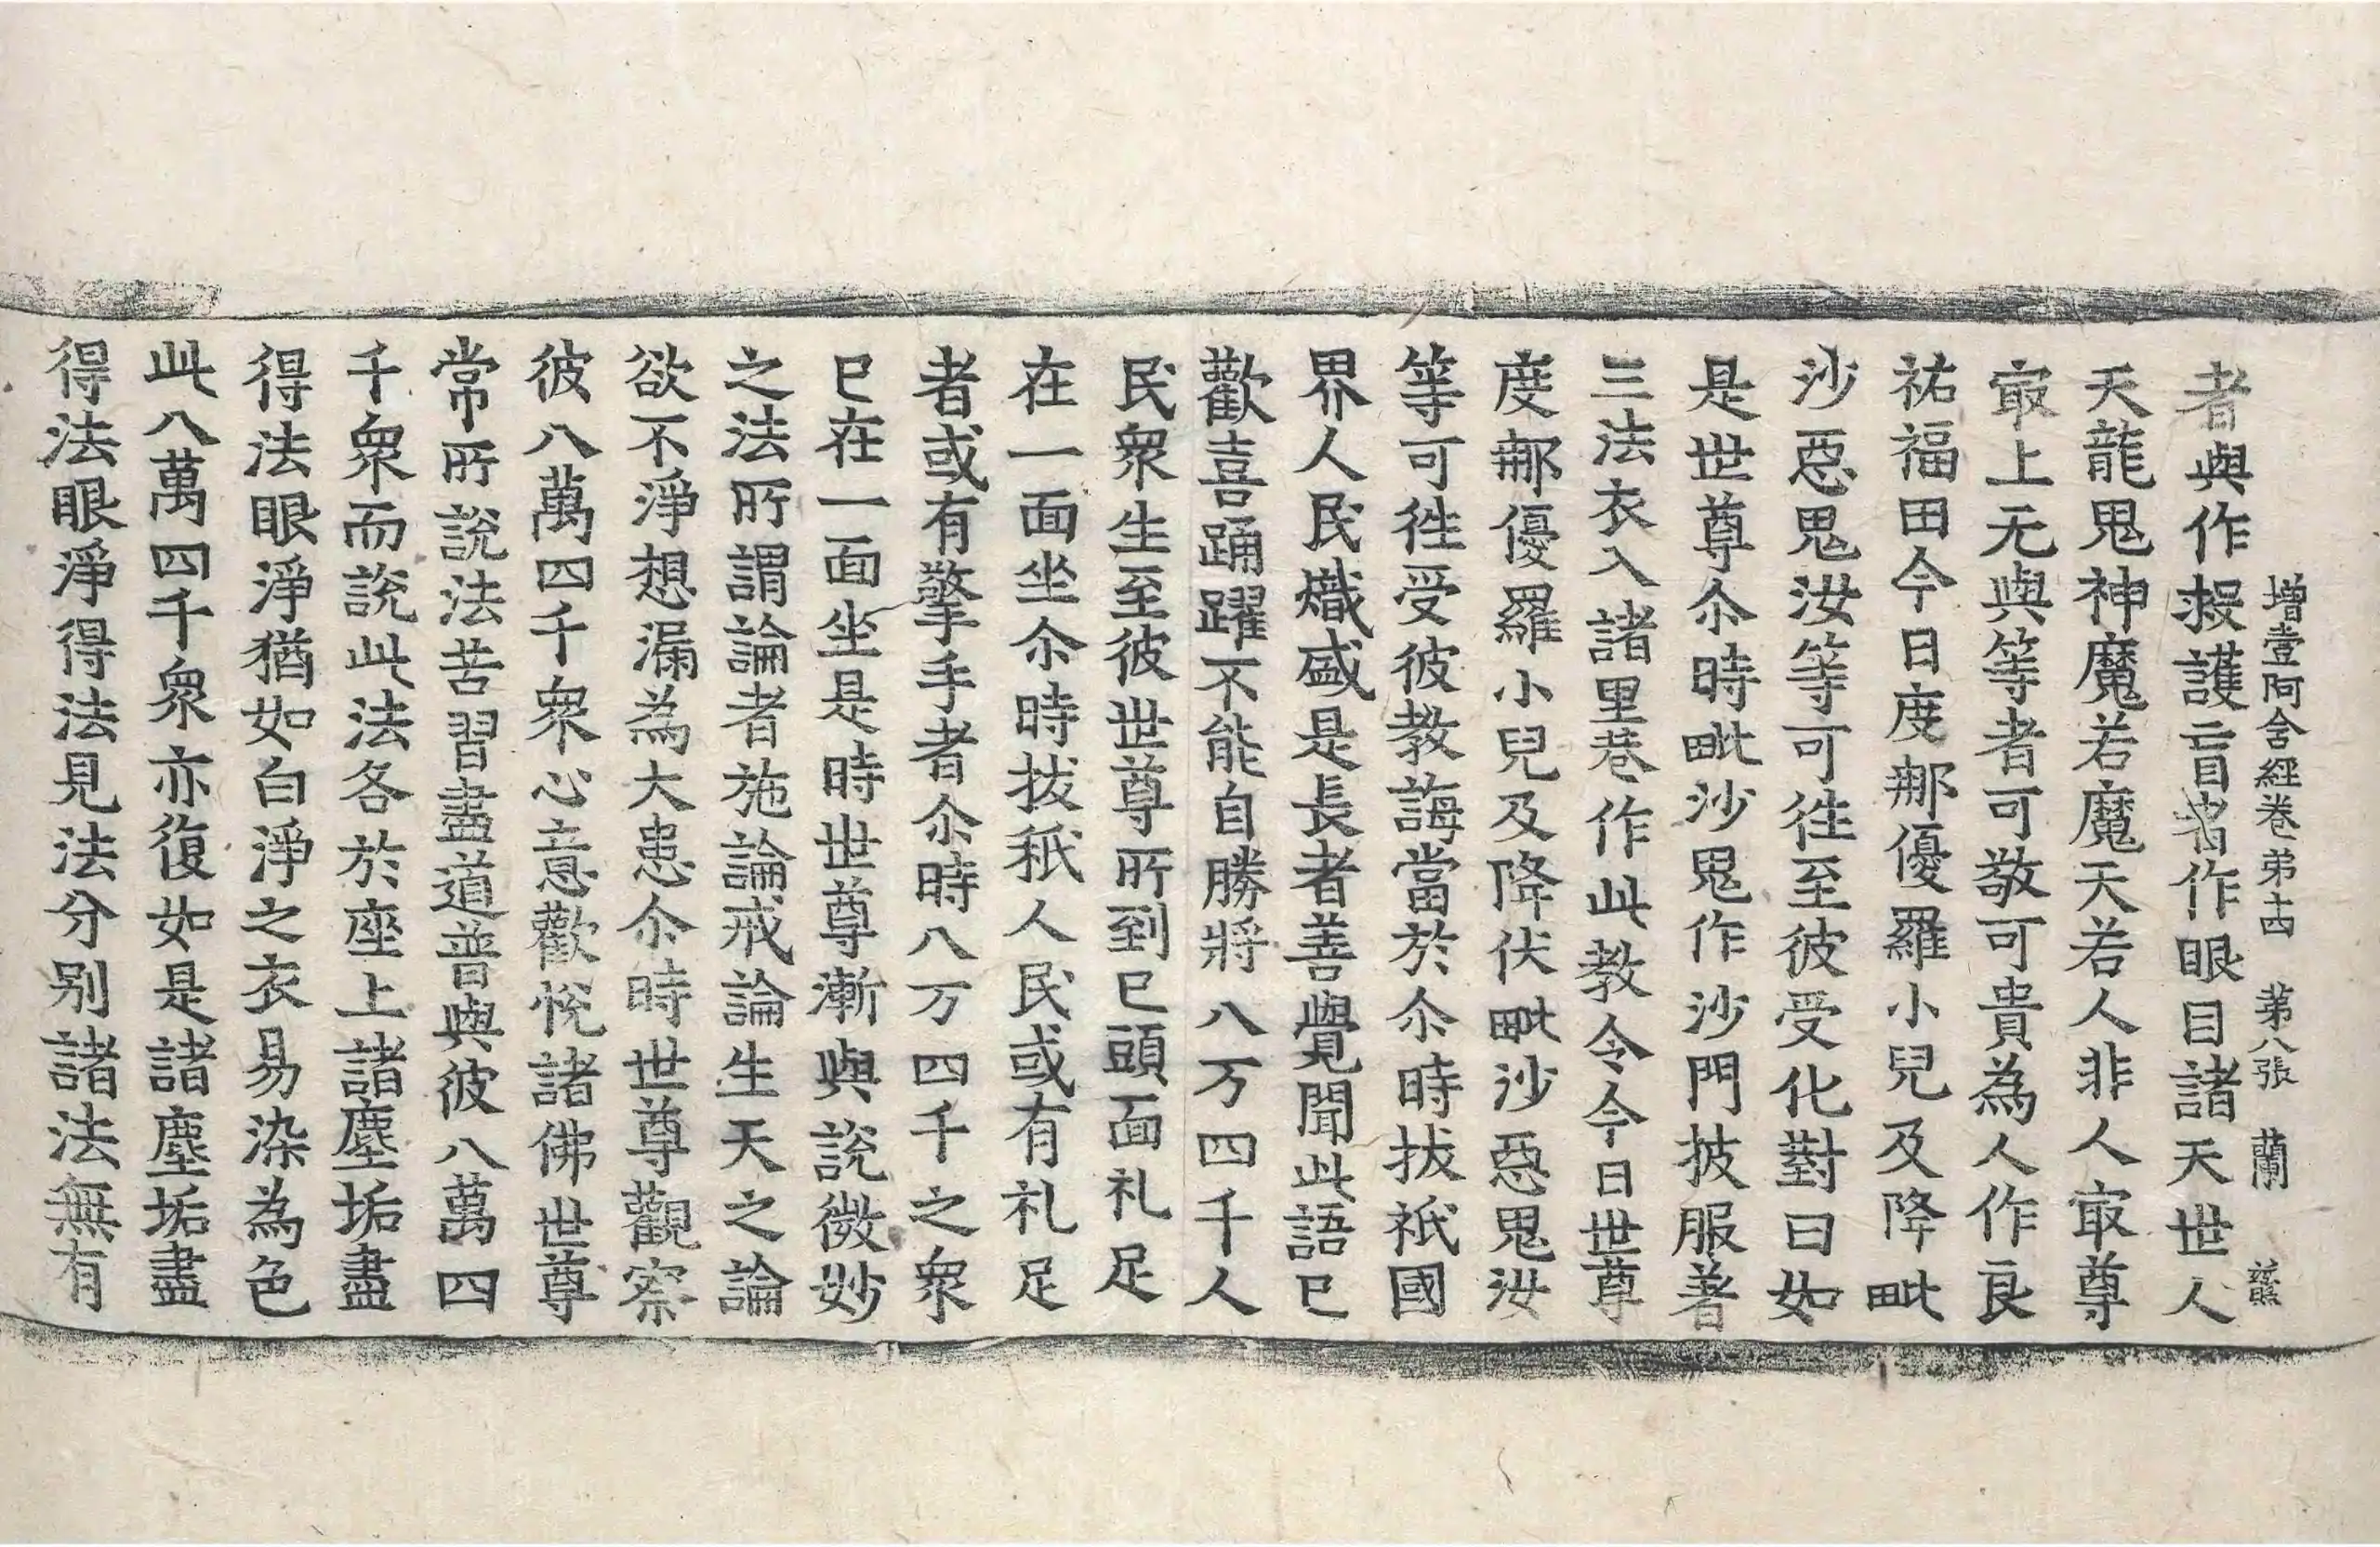 增壹阿含經卷弟十四 苐八張 蘭
者與作救護盲者作眼目諸天世人
天龍鬼神魔若魔天若人非人㝡尊
㝡上无與等者可敬可貴為人作良
祐福田今日度那優羅小兒及降毗
沙惡鬼汝等可徃至彼受化對曰如
是世尊尒時毗沙鬼作沙門披服著
三法衣入諸里巷作此教令今日世尊
度那優羅小兒及降伏毗沙惡鬼汝
等可徃受彼教誨當於尒時拔祇國
界人民熾盛是長者善覺聞此語已
歡喜踊躍不能自勝將八万四千人
民衆生至彼世尊所到已頭面礼足
在一面坐尒時拔秖人民或有礼足
者或有擎手者尒時八万四千之衆
已在一面坐是時世尊漸與說微妙
之法所謂論者施論戒論生天之論
欲不淨想漏為大患尒時世尊觀察
彼八萬四千衆心意歡悅諸佛世尊
常所說法苦習盡道普與彼八萬四
千衆而說此法各於座上諸塵垢盡
得法眼淨猶如白淨之衣易染為色
此八萬四千衆亦復如是諸塵垢盡
得法眼淨得法見法分別諸法無有